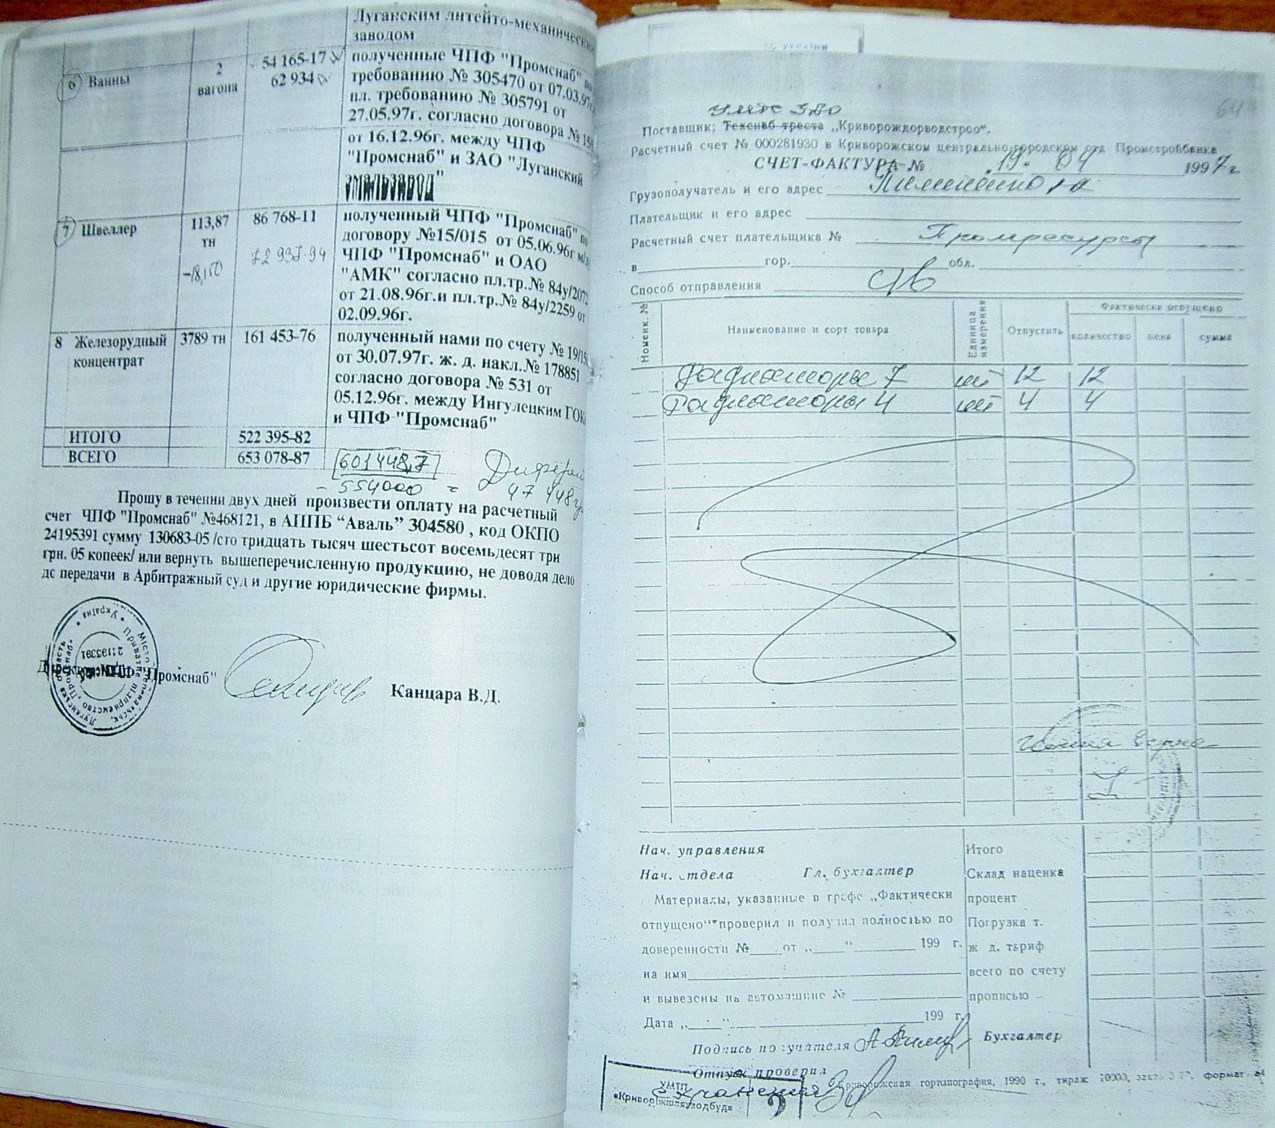 Луганским литейто-механическим
заводом
6 Ванны 2 вагона 54 165-17 62 934
полученные ЧПФ "Промснаб" по
требованию № 305470 от 07.03.97г.
пл. требованию № 305791 от
27.05.97г. согласно договора №
от 16.12.96г. между ЧПФ
"Промснаб" и ЗАО "Луганский
эмальзавод"
7 Швеллер 113,87 тн 86 768-11
полученный ЧПФ "Промснаб" по
договору №15/015 от 05.06.96г м/у
ЧПФ "Промснаб" и ОАО
"АМК" согласно пл.тр.№ 84у/2072
от 21.08.96г.и пл.тр.№ 84у/2259 от
02.09.96г.
8 Железорудный концентрат 3789 тн 161 453-76
полученный нами по счету №
от 30.07.97г. ж. д. накл.№ 178851
согласно договора № 531 от
05.12.96г. между Ингулецким ГОК
и ЧПФ-"Промснаб"
ИТОГО 522 395-82
ВСЕГО 653 078-87
601448,7
- 554000 =
47 448
Прошу в течении двух дней произвести оплату на расчетный
счет ЧПФ "Промснаб" №468121, в АППБ “Аваль” 304580 , код ОКПО
24195391 сумму 130683-05 /сто тридцать тысяч шестьсот восемьдесят три
грн. 05 копеек/ или вернуть вышеперечисленную продукцию, не доводя дело
до передачи в Арбитражный суд и другие юридические фирмы.
Директор ЧПФ "Промснаб" Канцара В.Д.
64
Поставщик; Техснаб треста „Криворождорводстрой“.
Расчетный счет № 000281930 в Криворожском центрально-городском отд Промстройбанка
СЧЕТ-ФАКТУРА № 19. 04 1997 г.
Грузополучатель и его адрес
Плательщик и его адрес
Расчетный счет плательщика № Промресурсы
в гор. обл.
Способ отправления с/в
Номенк. № Наименование и сорт товара Единица измерения Отпустить Фактически отпущено
количество цена сумма
Радиаторы 7 шт 12 12
Радиаторы 4 шт 4 4
Копия верна
Нач. управления Итого
Нач. отдела Гл. бухгалтер Склад наценка
Материалы, указанные в графе „Фактически процент
отпущено“ проверил и получил полностью по Погрузка т.
доверенности № от „ “ 199 г. ж д. тариф
на имя всего по счету
и вывезены на автомашине № прописью
Дата „ “ 199 г.
Подпись получателя Бухгалтер
Отпуск проверил
Криворожская гортипография, 1990 г., тираж 10000, формат
УМТП